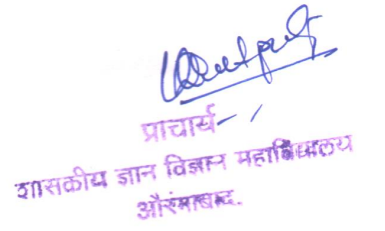 प्राचार्य
शासकीय ज्ञान विज्ञान महाविद्यालय
औरंगाबाद.